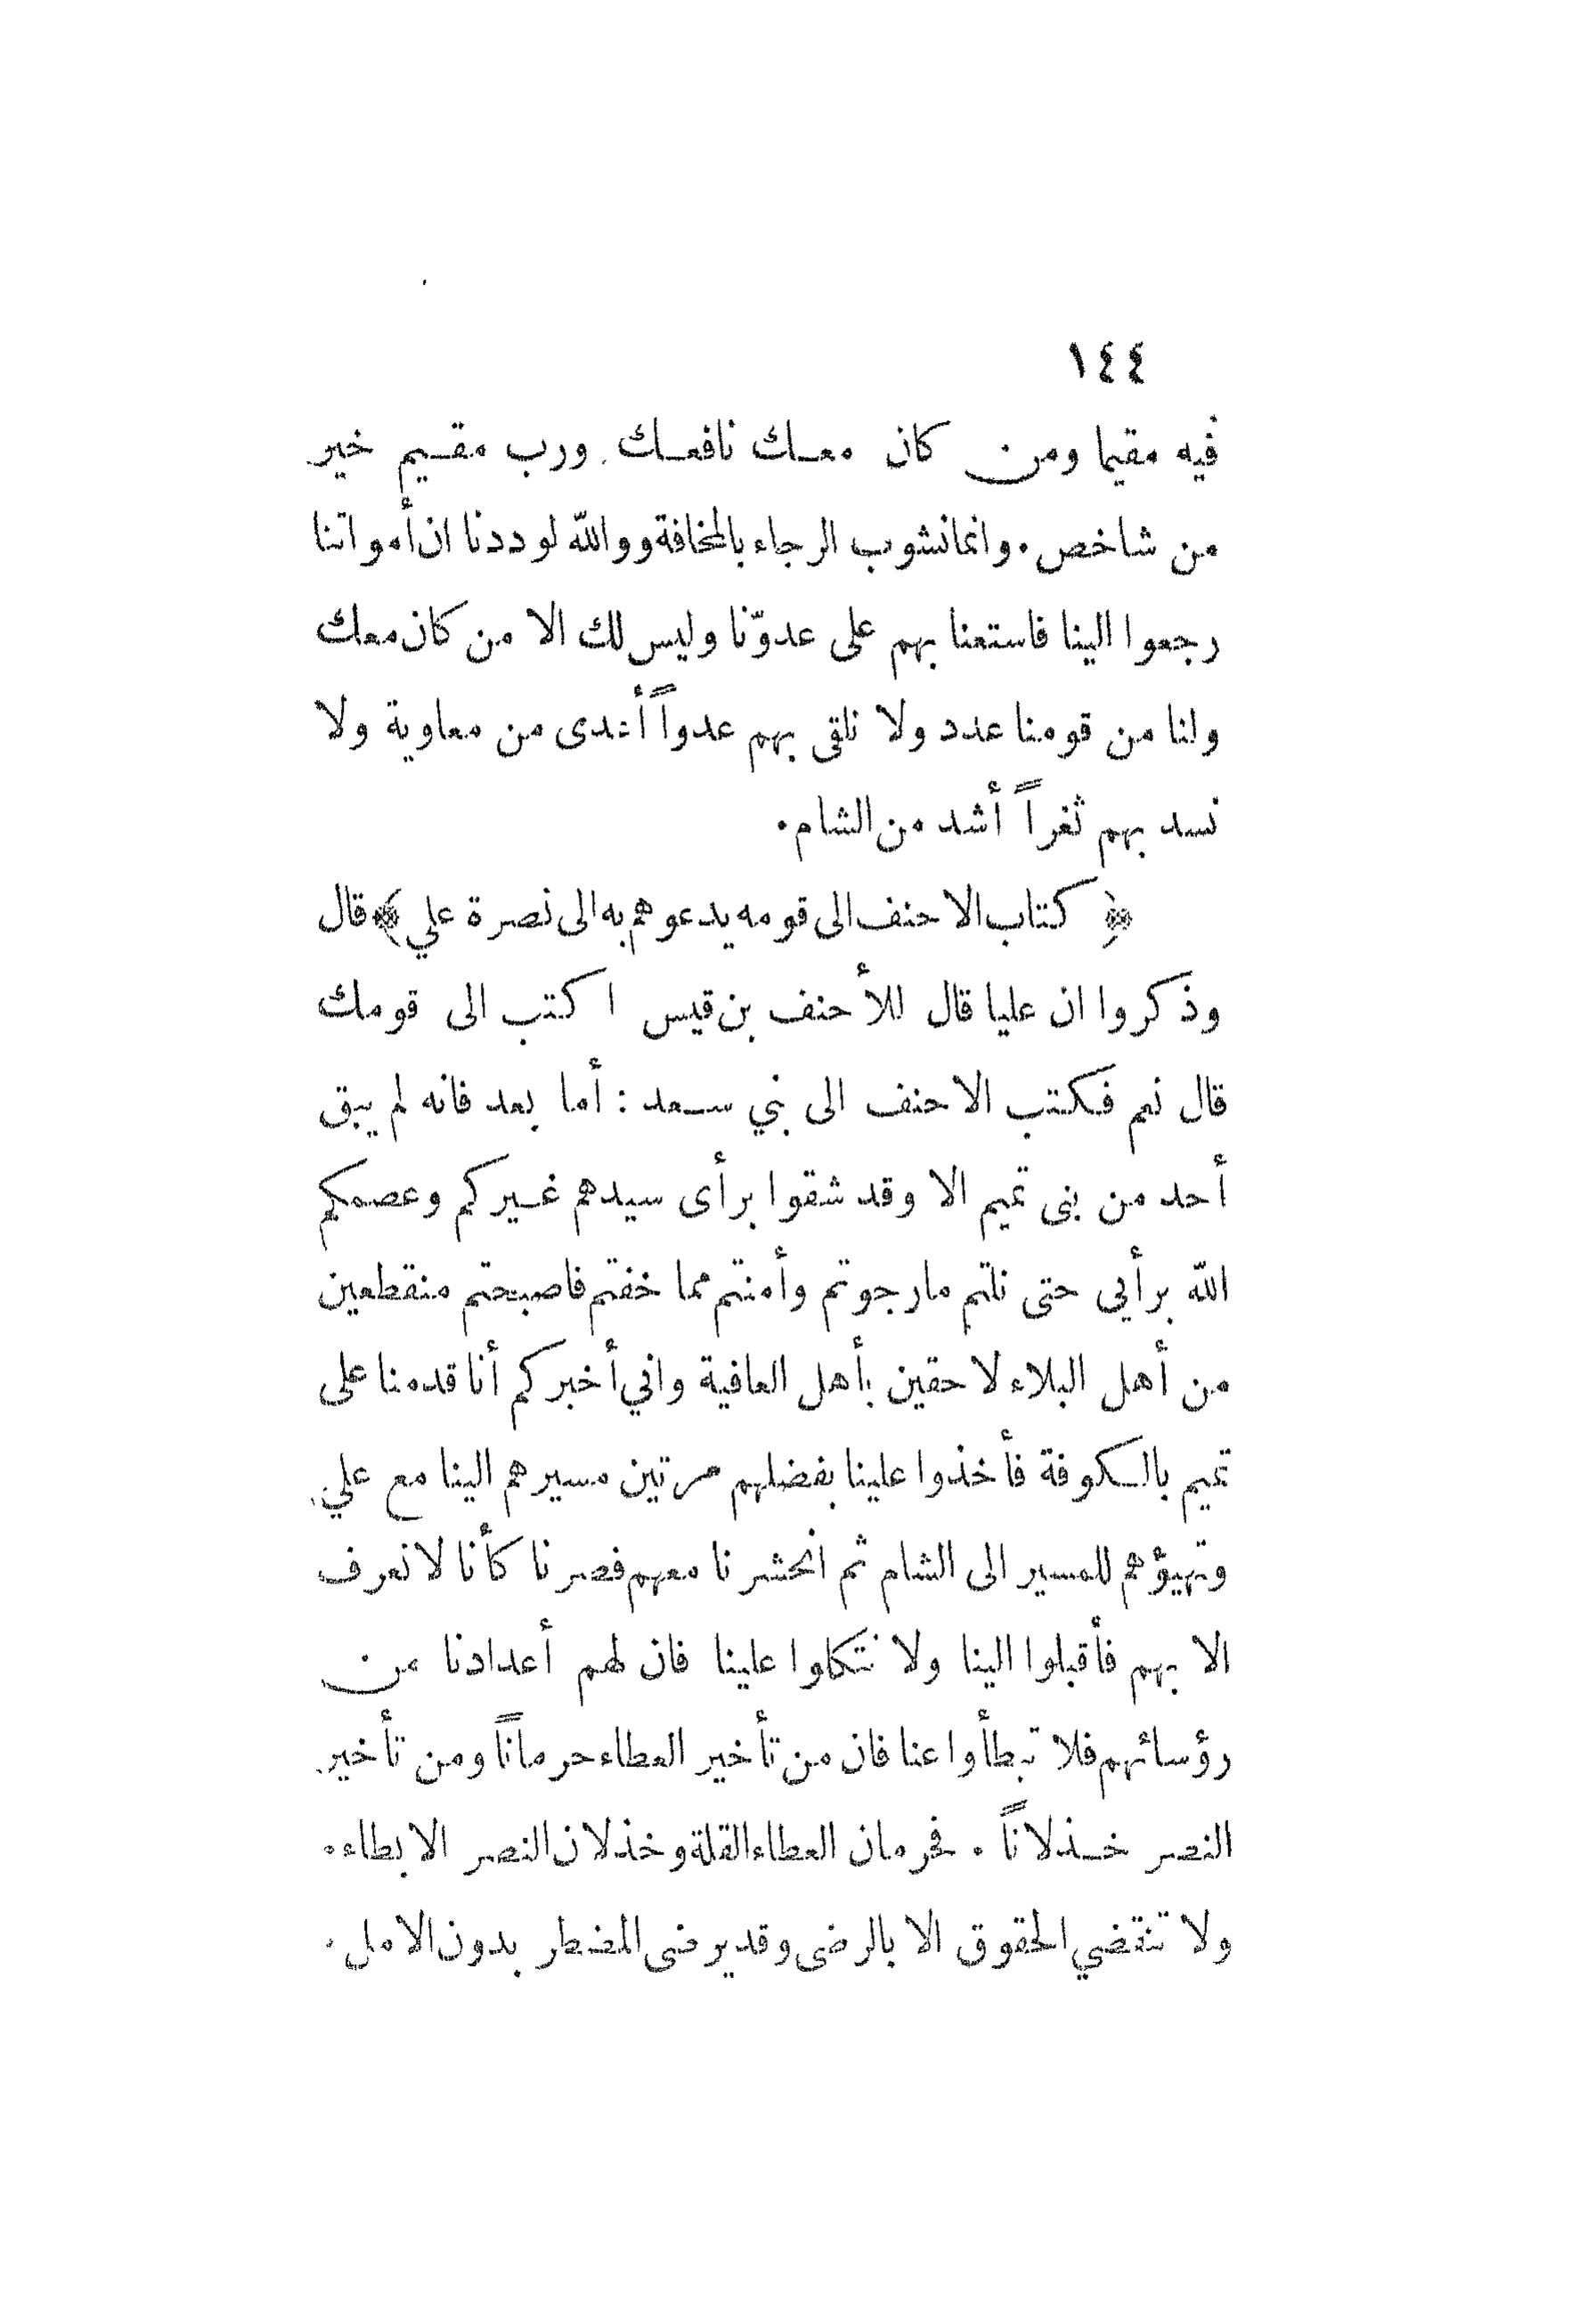 ١٤٤
فيه مقيما ومن كان معك نافعك. ورب مقيم خير
من شاخص. وانما نشوب الرجاء بالمخافة ووالله لوددنا ان أمواتنا
رجعوا الينا فاستعنا بهم على عدوّنا وليس لك الا من كان معك
ولنا من قومنا عدد ولا نلقى بهم عدواً أعدى من معاوية ولا
نسد بهم ثغراً أشد من الشام.
﴿ كتاب الاحنف الى قومه يدعوهم به الى نصرة علي ﴾ قال
وذكروا ان عليا قال للأحنف بن قيس اكتب الى قومك
قال نعم فكتب الاحنف الى بني سعد : أما بعد فانه لم يبق
أحد من بنى تميم الا وقد شقوا برأى سيدهم غيركم وعصمكم
الله برأيي حتى نلتم ما رجوتم وأمنتم مما خفتم فاصبحتم منقطعين
من أهل البلاء لاحقين بأهل العافية واني أخبركم أنا قدمنا على
تميم بالكوفة فأخذوا علينا بفضلهم مرتين مسيرهم الينا مع علي
وتهيؤهم للمسير الى الشام ثم انحشرنا معهم فصرنا كأنا لا نعرف
الا بهم فأقبلوا الينا ولا نتكلوا علينا فان لهم أعدادنا من
رؤسائهم فلا تبطأوا عنا فان من تأخير العطاء حرماناً ومن تأخير
النصر خذلاناً . فحرمان العطاء القلة وخذلان النصر الابطاء.
ولا تنقضي الحقوق الا بالرضى وقد يرضى المضطر بدون الامل.